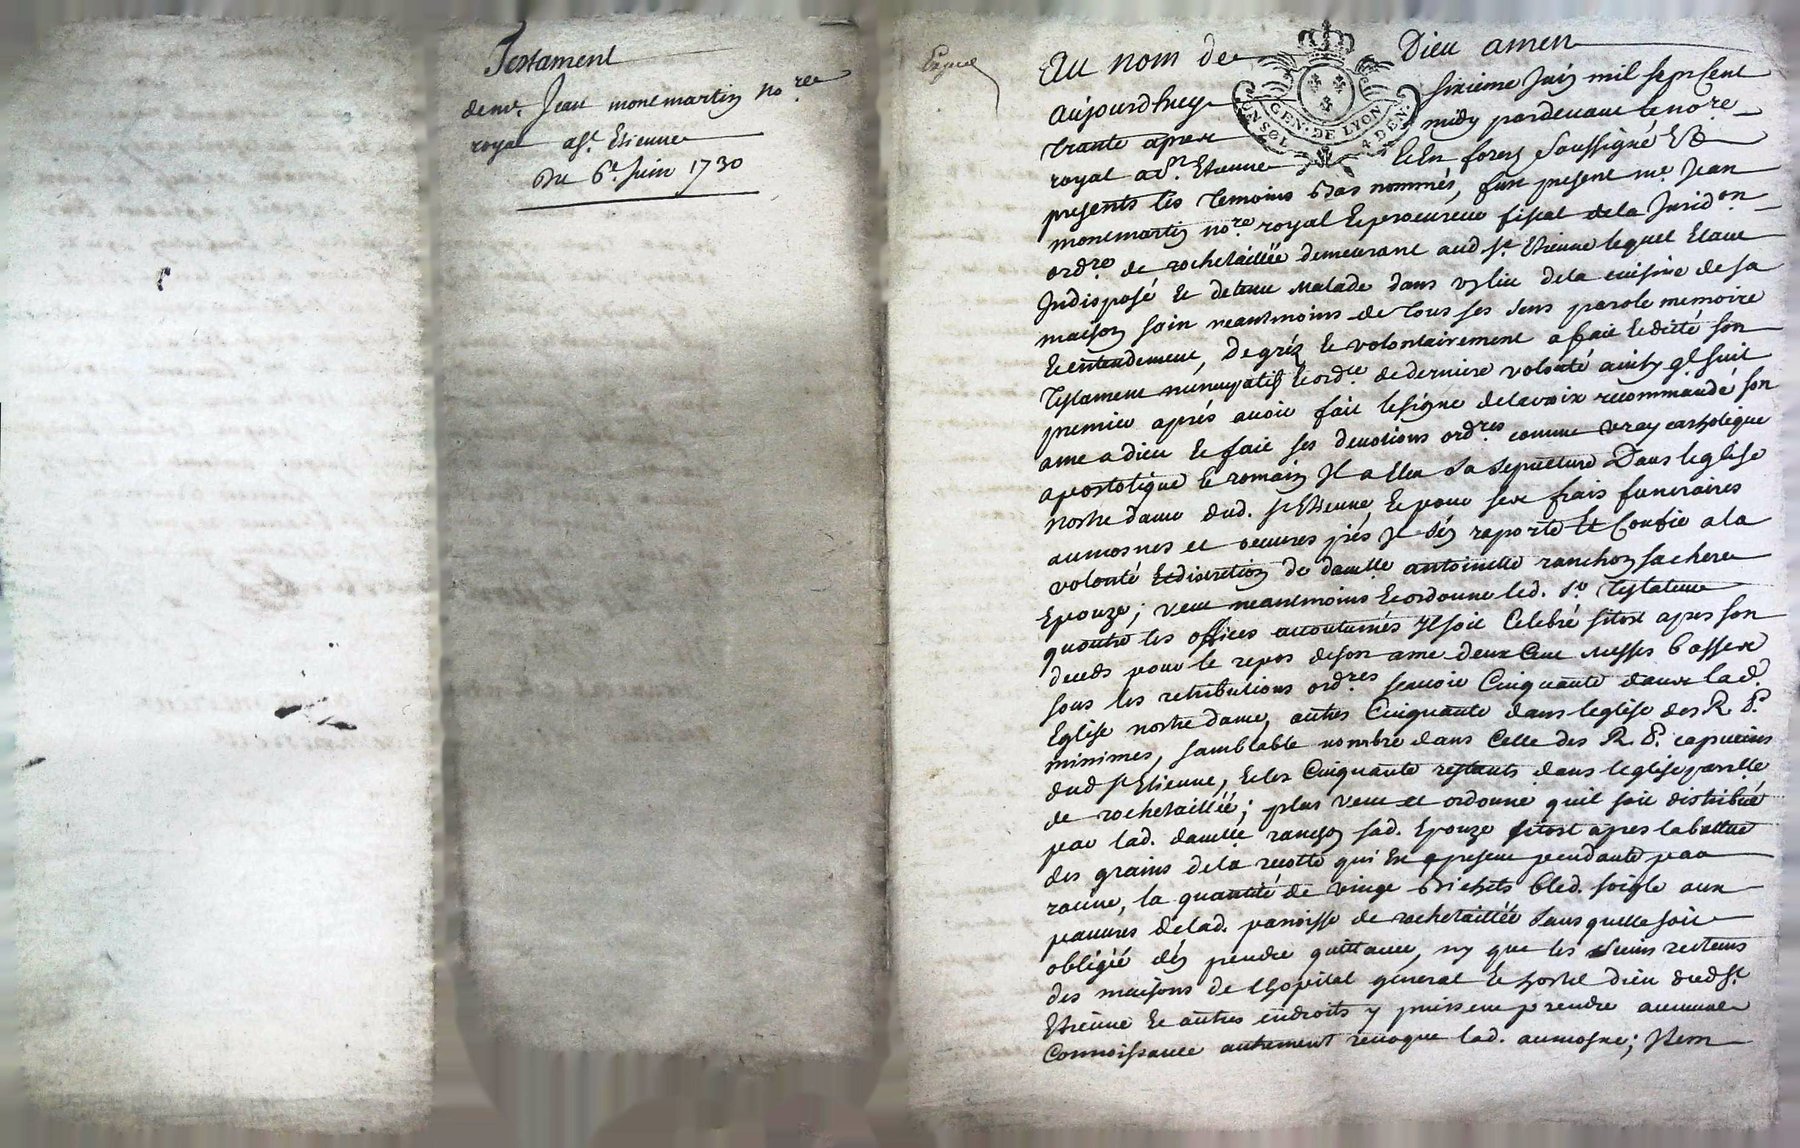 Testament
de mr. Jean montmartin no.re
royal a St. Etienne
Du 6e. Juin 1730
Expedié
Au nom de Dieu amen
Aujourdhuy sixieme Juin mil sept Cent
trante apres midy pardevant le no.re
royal a St. Etienne En forez soussigné Et
presents les temoins bas nommés, fut present me. Jean
montmartin no.re royal Et procureur fiscal de la Jurid.on
ord.re de rochetaillée demeurant aud St. Etienne lequel Etant
Indisposé Et detenu malade dans un lict de la cuisine de sa
maison sain neantmoins de tous ses sens parole memoire
Et entendement, de gréz Et volontairement a fait Et dicté son
testament nuncupatif Et ord.ce de derniere volonté ainsy ql. suit
premier aprés avoir fait le signe de la croix recommandé son
ame a dieu Et fait ses devotions ord.res comme vray catholique
apostolique Et romain Il a Eleu sa sepulture Dans leglise
nostre dame dud. St Etienne, Et pour ses frais funeraires
aumosnes et oeuvres piés Il s'én raporte Et Confie a la
volonté Et discretion de dam.lle antoinette ranchon sa chere
Epouze; veut neantmoins Et ordonne led. sr. testateur
quoutre les offices accoutumés Il soit Celebré sitost apres son
deceds pour le repos de son ame deux Cent messes basses
sous les retributions ord.res scavoir Cinquante dans lad.
Eglise nostre dame, autres Cinquante dans leglise des R. P.
minimes, samblable nombre dans Celle des R. P. capucins
dud St Etienne, Et les Cinquante restants dans leglise par.lle
de rochetaillée; plus veut et ordonne quil soit distribué
par lad. dam.lle ranchon sad. Epouze sitost apres la battue
des grains de la recolte qui Est a present pendante par
racine, la quantité de vingt bichets bled. soigle aux
pauvres de lad. parroisse de rochetaillée sans quelle soit
obligée dén prendre quittance, ny que les sieurs recteurs
des maisons de lhopital général Et hostel dieu dud St.
Etienne Et autres endroits y puissent prendre aucune
Connoissance autrement revoque lad. aumosne; Item
GEN. DE LYON